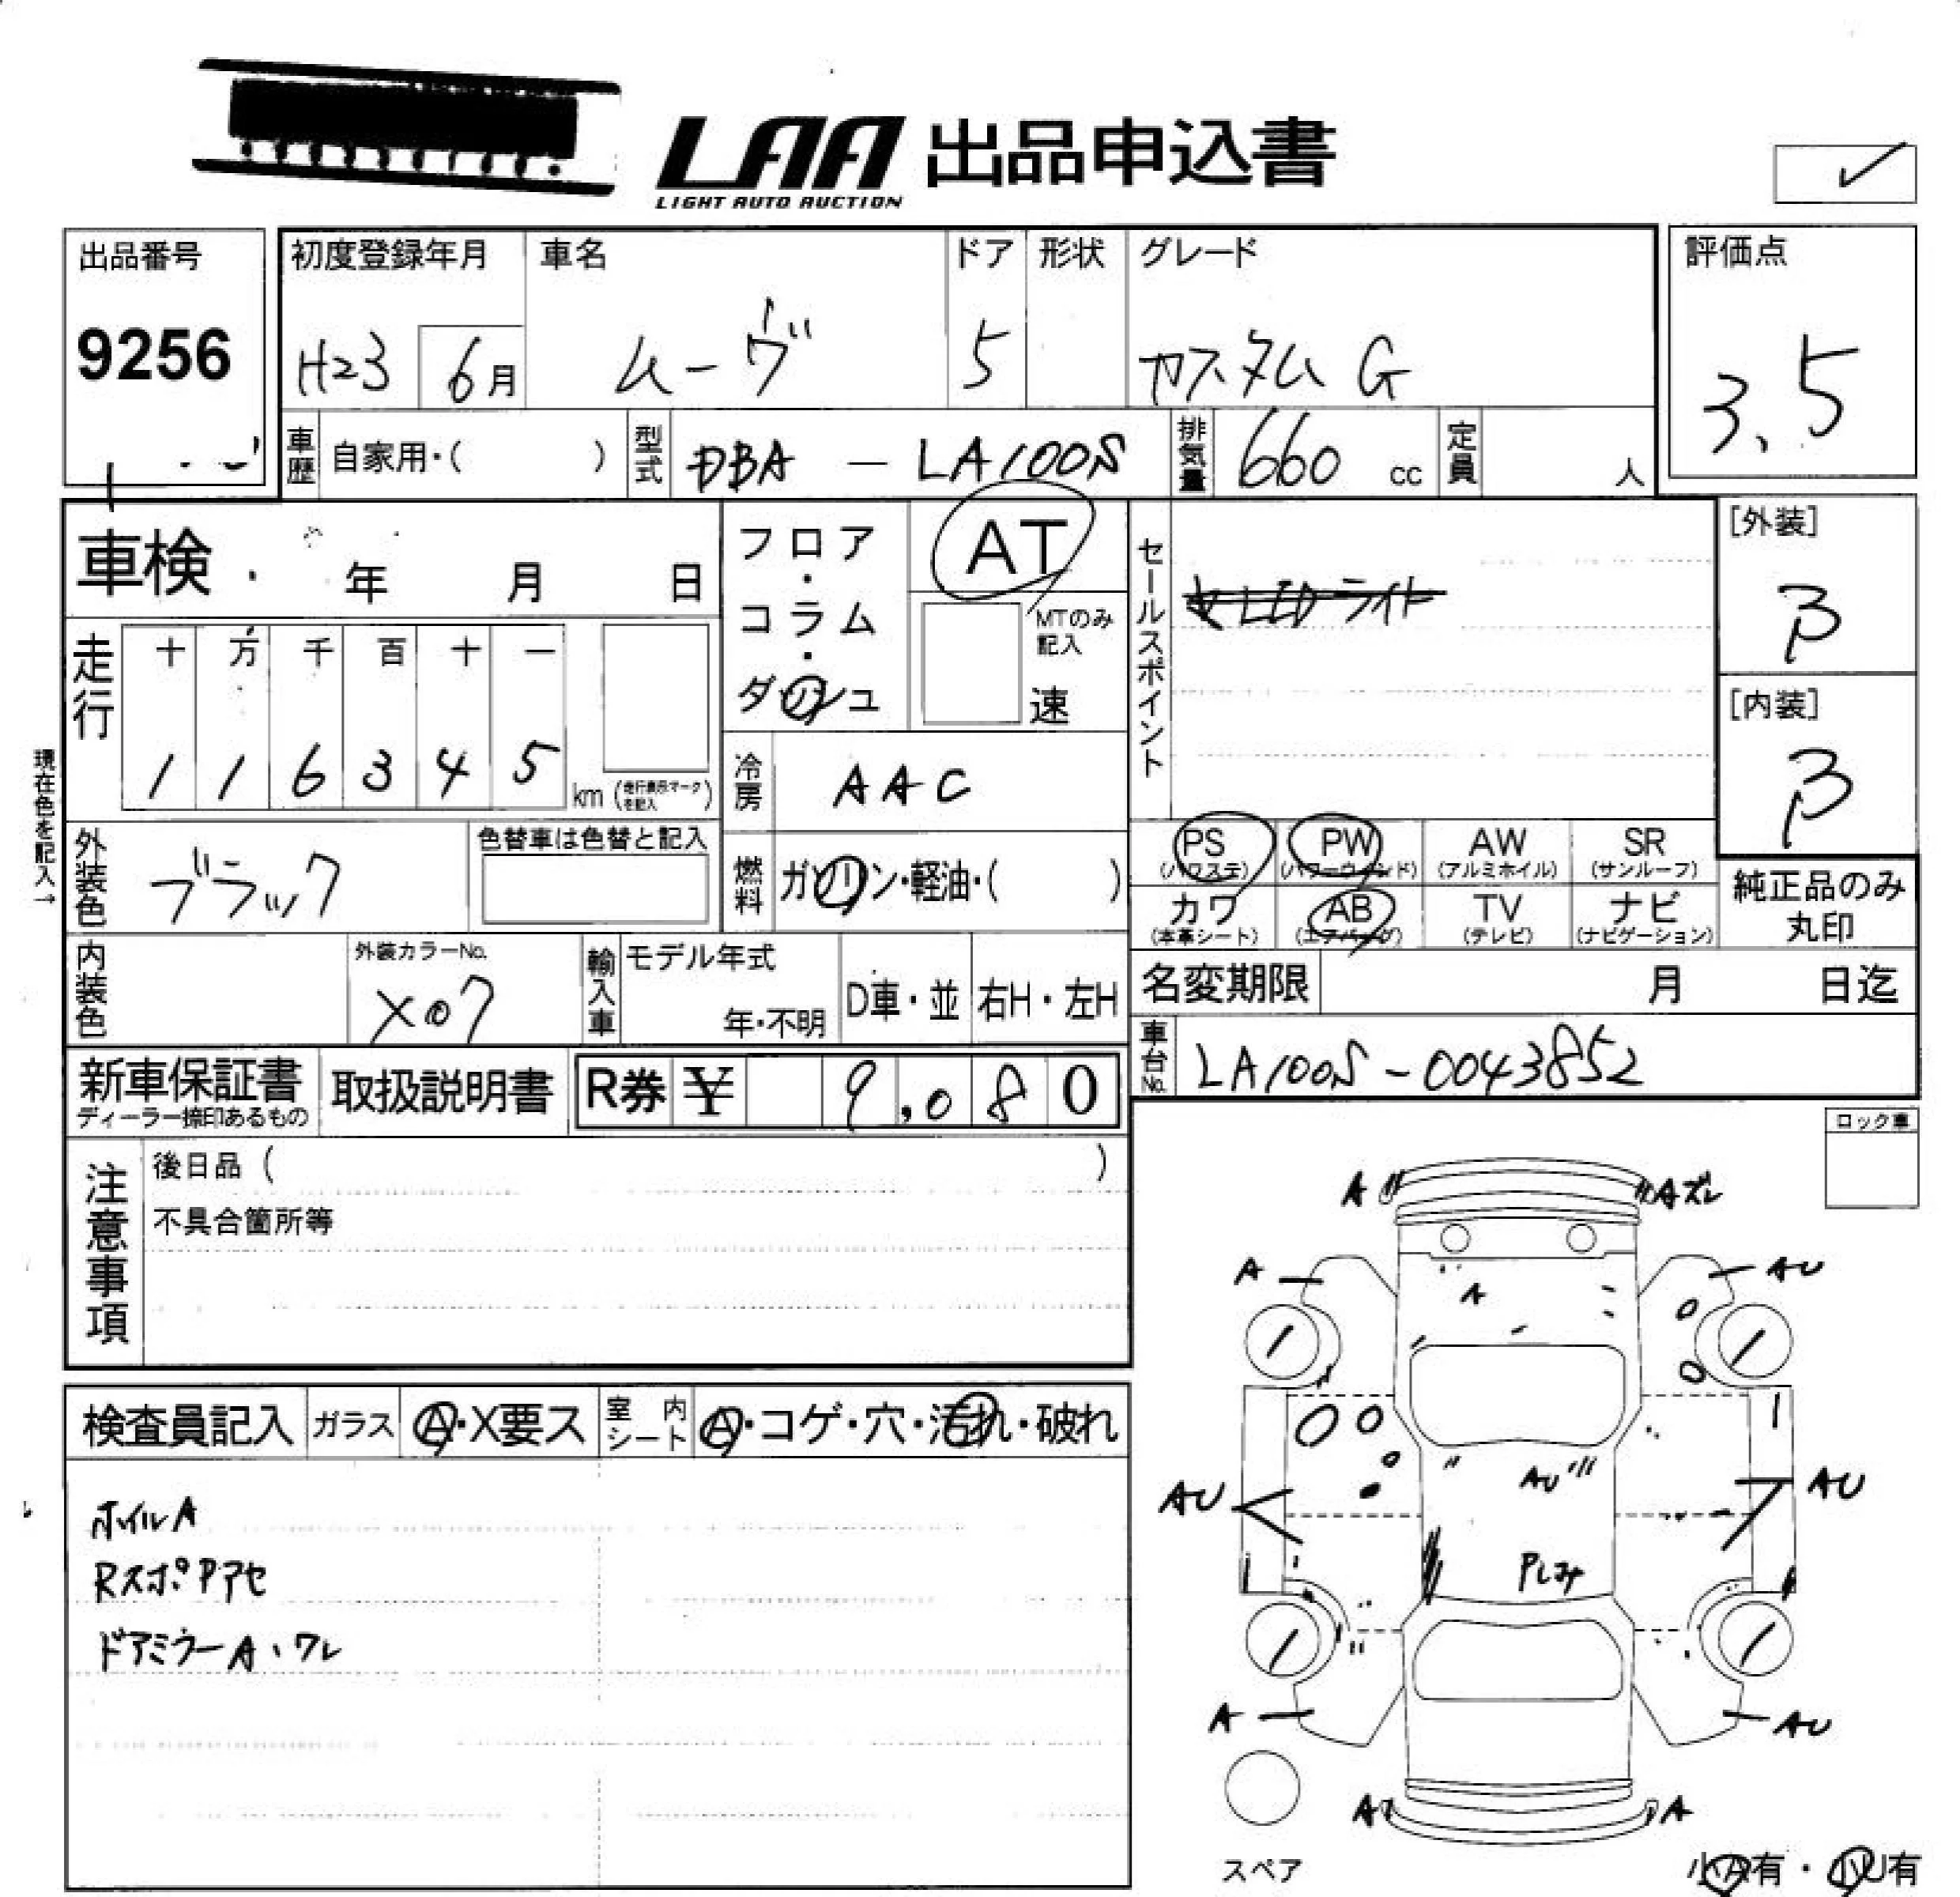 LAA 出品申込書
LIGHT AUTO AUCTION
出品番号
9256
初度登録年月
H23 6月
車名
ムーヴ
ドア
5
形状
グレード
カスタム G
評価点
3.5
車歴 自家用・( )
型式 DBA - LA100S
排気量 660 cc
定員 人
車検 年 月 日
フロア・コラム・ダッシュ
AT
MTのみ記入
速
セールスポイント
LEDライト
[外装]
B
[内装]
B
走行
十 万 千 百 十 一
1 1 6 3 4 5 km (走行表示マークを記入)
現在色を記入→
冷房 AAC
外装色 ブラック
色替車は色替と記入
燃料 ガソリン・軽油・( )
PS (パワステ)
PW (パワーウインド)
AW (アルミホイル)
SR (サンルーフ)
カワ (本革シート)
AB (エアバッグ)
TV (テレビ)
ナビ (ナビゲーション)
純正品のみ
丸印
内装色
外装カラーNo.
X07
輸入車
モデル年式
年・不明
D車・並
右H・左H
名変期限 月 日迄
車台No. LA100S-0043852
新車保証書
ディーラー捺印あるもの
取扱説明書
R券 ¥ 9,080
ロック車
注意事項
後日品 ( )
不具合箇所等
検査員記入
ガラス A・X要ス
室内シート A・コゲ・穴・汚れ・破れ
ホイルA
RスポPアセ
ドアミラーA・ワレ
A
Aズレ
A
AU
A
AU
AU
AU
A
AU
A
A
スペア
小A有・小U有